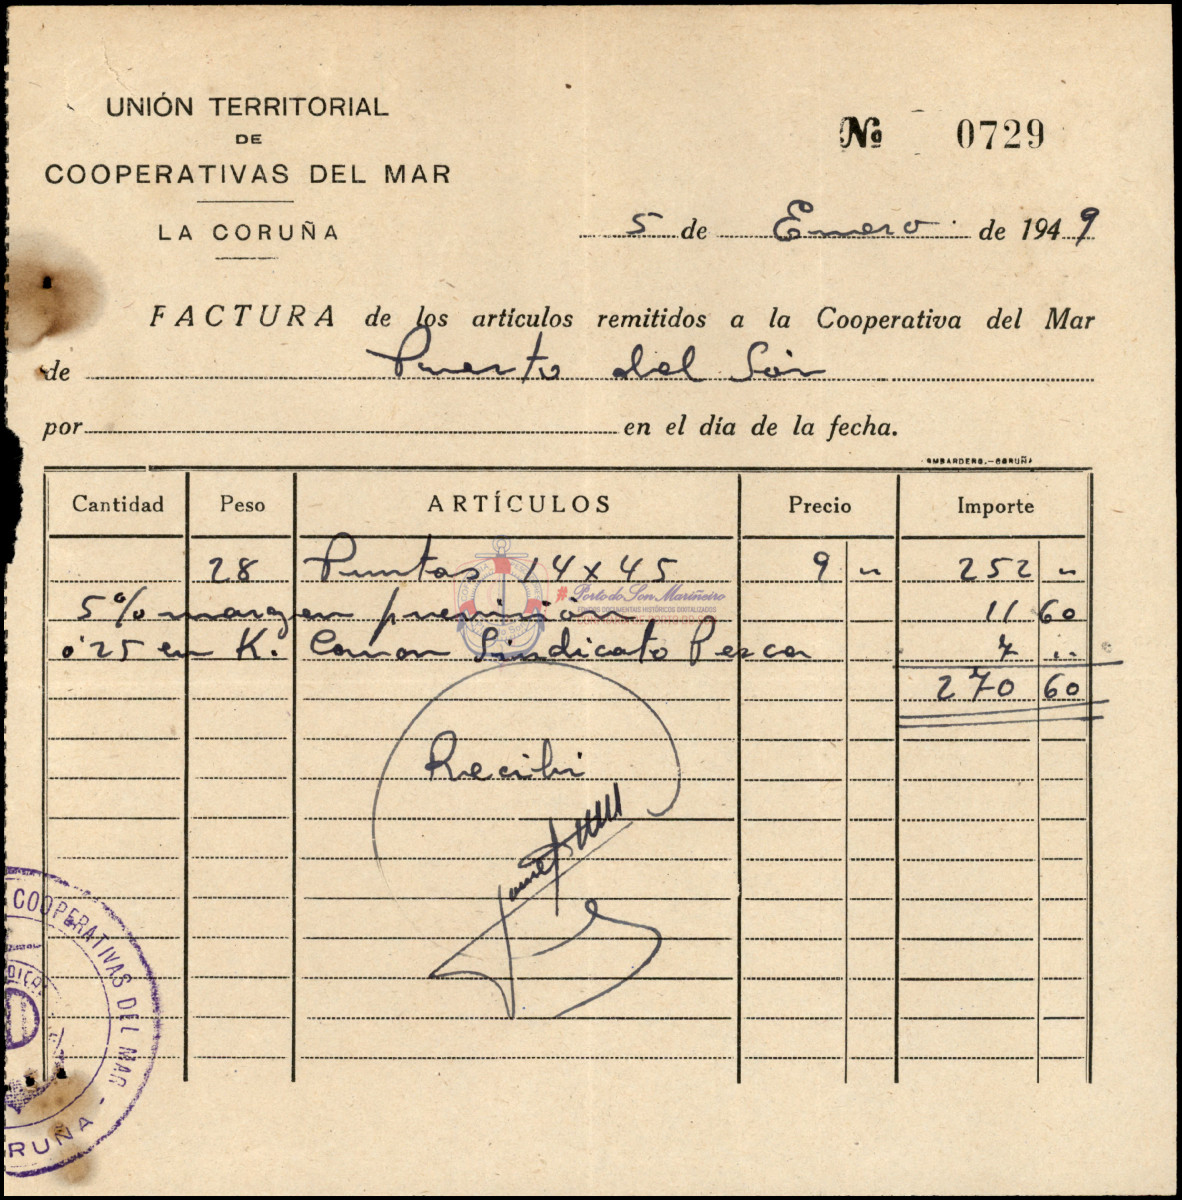 UNIÓN TERRITORIAL
DE
COOPERATIVAS DEL MAR
LA CORUÑA
Nº 0729
5 de Enero de 1949
FACTURA de los artículos remitidos a la Cooperativa del Mar
de Puerto del Són
por en el día de la fecha.
Cantidad Peso ARTÍCULOS Precio Importe
28 Puntas 14 x 45 9 " 252 "
5% margen previsión 11 60
0'25 en K. Canon Sindicato Pesca 7 "
270 60
#PortodoSonMariñeiro
FONDOS DOCUMENTAIS HISTÓRICOS DIXITALIZADOS
Recibí
COOPERATIVAS DEL MAR -
RUÑA